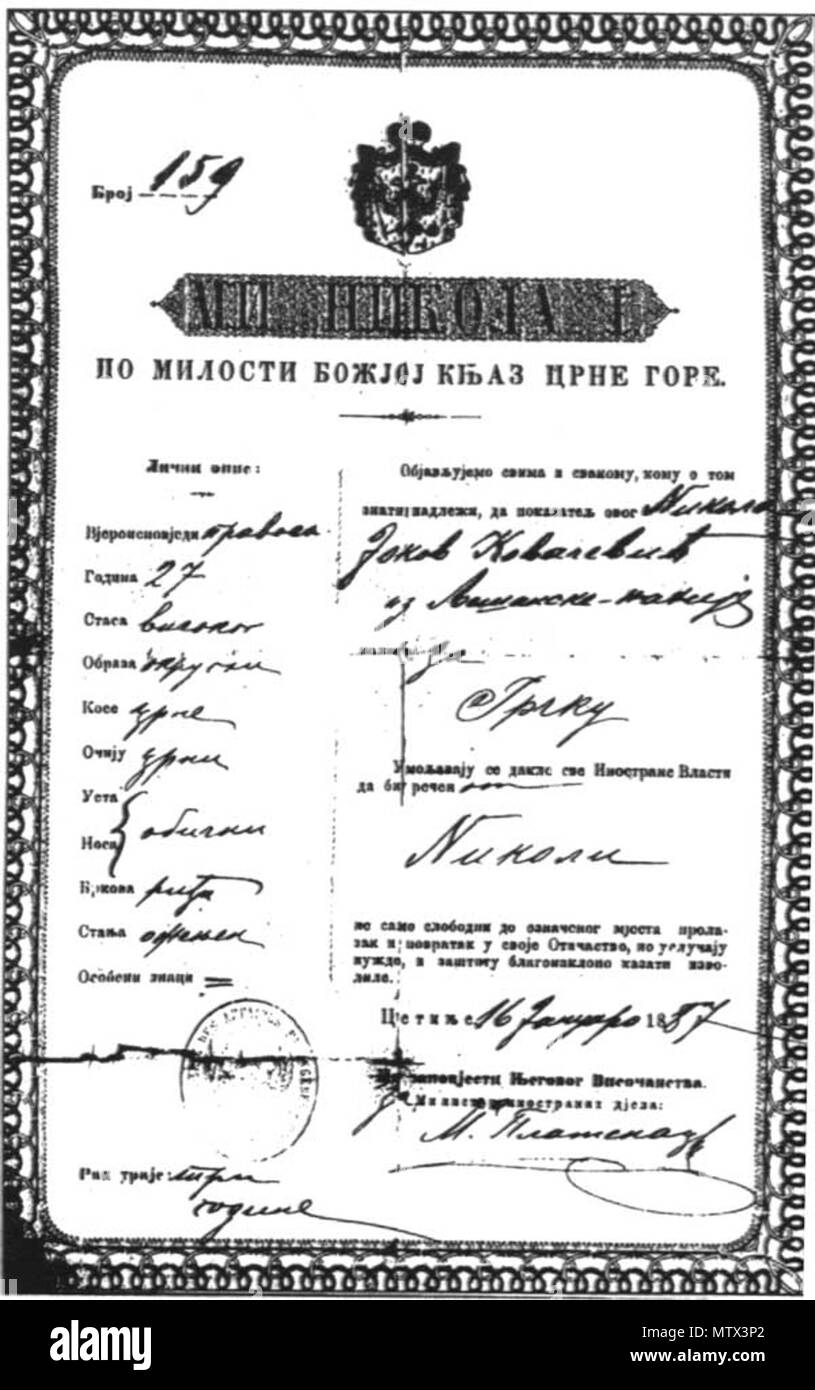 Број 159
МИ НИКОЛА I
ПО МИЛОСТИ БОЖЈОЈ КЊАЗ ЦРНЕ ГОРЕ.
Лични опис:
Вјероисповједи правосл.
Година 27
Стаса високог
Образа
Косе црне
Очију црни
Уста
Носа
обични
Бркова
Стања ожењен
Особени знаци =
Рок траје: три
године
Објављујемо свима и свакому, кому о том
знати надлежи, да показатељ овог Никола
Јоков Ковачевић
из
у
Грчку
Умољавају се дакле све Иностране Власти
да би речен
Николи
не само слободни до означеног мјеста прола-
зак и повратак у своје Отачаство, но у случају
нужде, и заштиту благонаклоно казати изво-
лиле.
Цетиње 16 Јануаро 1887
По заповјести Његовог Височанства.
Министар иностраних дјела:
alamy
Image ID: MTX3P2
www.alamy.com